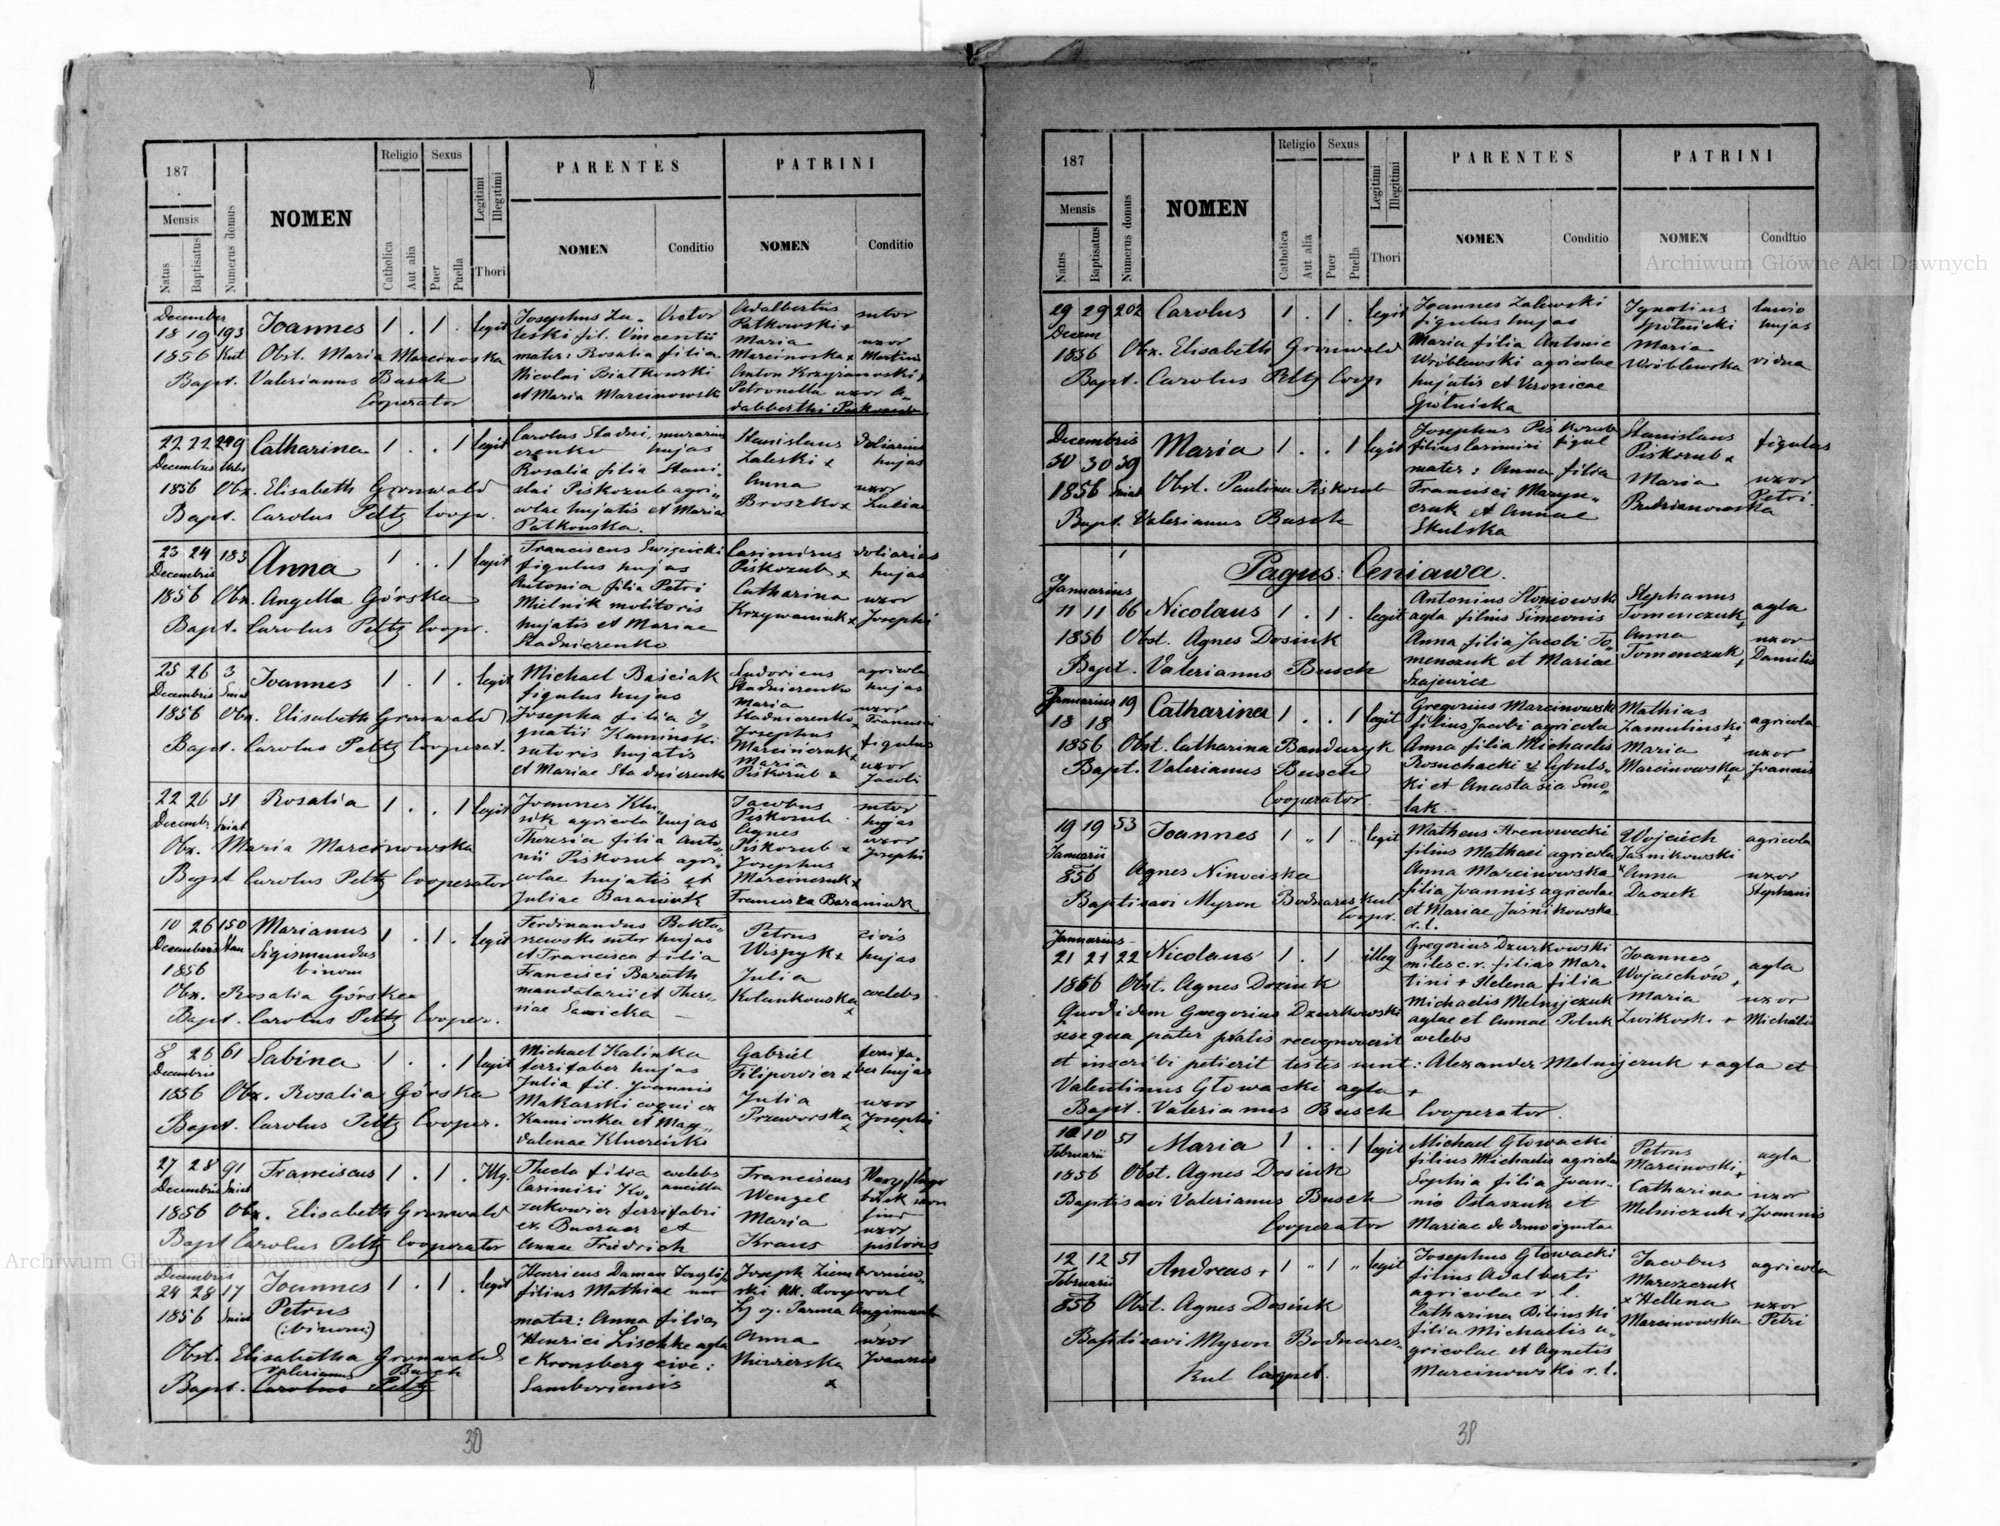 187
Mensis
Natus
Baptisatus
Numerus domus
NOMEN
Religio
Catholica
Aut alia
Sexus
Puer
Puella
Legitimi
Illegitimi
Thori
PARENTES
NOMEN
Conditio
PATRINI
NOMEN
Conditio
December
18 19 193 Joannes 1 . 1 . legit
1856 Obst. Maria Marcinowska
Bapt. Valerianus Busch
Cooperator
Josephus Za-
leski fil. Vincentii
mater: Rosalia filia
Nicolai Białkowski
et Maria Marcinowska
Adalbertus
Patkowski +
Maria
Marcinoska x
Anton Krzyżanowski x
Petronella uxor A-
dalberthi
sutor
uxor
22 22 249 Catharina 1 . . 1 legit
Decembris
1856 Obx. Elisabeth Gronwald
Bapt. Carolus Peltz Coopr.
Carolus Stadni- murarius
czenko hujas
Rosalia filia Stani-
slai Piskozub agri-
colae hujatis et Maria
Patkowska.
Stanislaus
Zaleski x
Anna
Broszko x
doliarius
hujas
uxor
23 24 183 Anna 1 . . 1 legit
Decembris
1856 Obx. Angella Górska
Bapt. Carolus Peltz Coopr.
Franciscus Swięcicki
figulus hujas
Antonia filia Petri
Mielnik molitoris
hujatis et Mariae
Stadniczenko
Casimirus
Piskozub x
Catharina
Krzywaniuk x
doliarius
hujas
uxor
Josephi
25 26 3 Joannes 1 . 1 . legit
Decembris Sniat
1856 Obx. Elisabeth Gronwald
Bapt. Carolus Peltz Cooperat.
Michael Baściak
figulus hujas
Josepha filia J-
gnatii Kaminski
sutoris hujatis
et Mariae Stadniczenko
Ludovicus
Stadniczenko
Maria
Stadniczenko
Josephus
Marcinczuk x
Maria
Piskozub x
agricola
hujas
uxor
Francisci
figulus
uxor
Jacobi
22 26 31 Rosalia 1 . . 1 legit
Decembr. Sniat
Obx. Maria Marcinowska
Bapt Carolus Peltz Cooperator
Joannes
agricola hujas
Theresia filia Anto-
nii Piskozub agri-
colae hujatis et
Juliae Baraniuk
Jacobus
Piskozub
Agnes
Piskozub x
Josephus
Marcinczuk x
Francisca Baraniuk
sutor
hujas
uxor
Josephi
10 26 150 Marianus 1 . 1 . legit
Decembris Sigismundus
1856 binom
Obx. Rosalia Górska
Bapt. Carolus Peltz Cooper.
Ferdinandus
sutor hujas
et Francisca filia
Francisci Barath
mandatarii et There-
siae Sawicka
Petrus
Wispyk x
Julia
Kolankowska x
civis
hujas
coelebs
8 26 61 Sabina 1 . . 1 legit
Decembris
1856 Obx. Rosalia Górska
Bapt. Carolus Peltz Cooper.
Michael Kalinka
ferrifaber hujas
Julia fil. Joannis
Makarski coqui ex
Kamionka et Mag-
dalenae
Gabriel
Filipowicz x
Julia
Przeworska x
ferrifa-
ber hujas
uxor
Josephi
27 28 91 Franciscus 1 . 1 . Illeg.
Decembris Sniat
1856 Obx. Elisabeth Gronwald
Bapt Carolus Peltz Cooperator
Thecla filia coelebs
Casimiri Ko- ancilla
zakowicz ferrifabri
ex Buczacz et
Annae Fridrich
Franciscus
Wengel
Maria
Kraus
uxor
pistoris
Decembris
24 28 17 Joannes 1 . 1 . legit
1856 Sniat Petrus
(:binomi:)
Obst. Elisabetha Gronwald
Valerianus Busch
Bapt. Carolus Peltz
Henricus Daman
filius Mathiae
mater: Anna filia
Henrici Lischke agla
e Kronsberg circ:
Samboriensis
Joseph
Anna
Niwierska
x
uxor
Joannis
30
187
Mensis
Natus
Baptisatus
Numerus domus
NOMEN
Religio
Catholica
Aut alia
Sexus
Puer
Puella
Legitimi
Illegitimi
Thori
PARENTES
NOMEN
Conditio
PATRINI
NOMEN
Conditio
29 29 202 Carolus 1 . 1 . legit
Decem
1856 Obx. Elisabeth Gronwald
Bapt. Carolus Peltz Coop
Joannes Zalewski
figulus hujas
Maria filia Antonie
Wróblewski agricolae
hujatis et Veronicae
Spólnicka
Ignatius
Spólnicki
Maria
Wróblewska
lanio
hujas
vidua
Decembris
30 30 39 Maria 1 . . 1 legit
1856 Sniat Obst. Paulina Piskozub
Bapt. Valerianus Busch
Josephus Piskozub
filius Casimiri figul
mater: Anna filia
Francisci Maryn-
czuk et Annae
Skulska
Stanislaus
Piskozub x
Maria
Budzianowska
figulus
uxor
Petri
Pagus: Ceniawa.
Januarius
11 11 66 Nicolaus 1 . 1 . legit
1856 Obst. Agnes Dosiuk
Bapt. Valerianus Busch
Antonius Słoniowski
agla filius Simeonis
Anna filia Jacobi To-
menczuk et Mariae
Szajewicz
Stephanus
Tomenczuk +
Anna
Tomenczuk +
agla
uxor
Danielis
Januarius 19 Catharina 1 . . 1 legit
18 18
1856 Obst. Catharina Banduryk
Bapt. Valerianus Busch
Cooperator
Gregorius Marcinowski
filius Jacobi agricola
Anna filia Michaelis
Rosuchacki v Cybuls-
ki et Anastasia Smo-
lak
Mathias
Zamulinski +
Maria
Marcinowska +
agricola
uxor
Joannis
19 19 53 Joannes 1 " 1 .. legit
Januarii
856 Agnes Niniciska
Baptisavi Myron Bodnares Rul
Coopr.
Matheus Krenowecki
filius Mathaei agricola
Anna Marcinowska
filia Joannis agricolae
et Mariae Jaśnikowska
r. l.
Wojciech
Jaśnikowski
x Anna
Daczek
agricola
uxor
Stephani
Januarius
21 21 22 Nicolaus 1 . 1 . illeg
1856 Obst. Agnes Doziuk
Quod idem Gregorius Dzurkowski
sese qua pater prolis recognoverit
et inscribi petierit testes sunt: Alexander Melnijczuk + agla et
Valentinus Głowacki agla +
Bapt. Valerianus Busch Cooperator.
Gregorius Dzurkowski
miles c.r. filius Mar-
tini + Helena filia
Michaelis Melnijczuk
aglae et Annae Poluk
coelebs
Joannes
Wojciechów +
Maria
Zwikowski +
agla
uxor
Michaelis
10 10 51 Maria 1 . . 1 legit
Februarii
1856 Obst. Agnes Dosiuk
Baptisavi Valerianus Busch
Cooperator
Michael Głowacki
filius Michaelis agricola
Sophia filia Joan-
nis Ostaszuk et
Mariae de domo ignota
Petrus
Marcinowski +
Catharina
Melniczuk +
agla
uxor
Joannis
12 12 51 Andreas + 1 " 1 " legit
Februarii
856 Obst. Agnes Dosiuk
Baptisavi Myron Bodnares
Rul
Josephus Głowacki
filius Adalberti
agricolae r. l.
Catharina Bilinski
filia Michaelis a-
gricolae et Agnetis
Marcinowski r. l.
Jacobus
Mareszczuk
x Hellena
Marcinowska
agricola
uxor
Petri
31
Archiwum Główne Akt Dawnych
Archiwum Główne Akt Dawnych